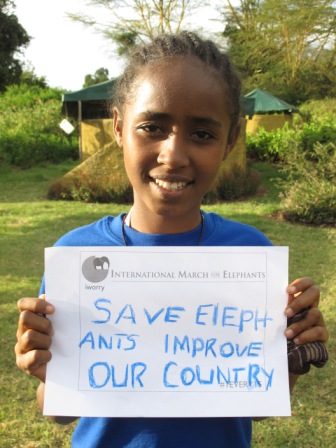 iworry
INTERNATIONAL MARCH FOR ELEPHANTS
SAVE ElEPH
ANTS IMPROVE
OUR COUNTRY